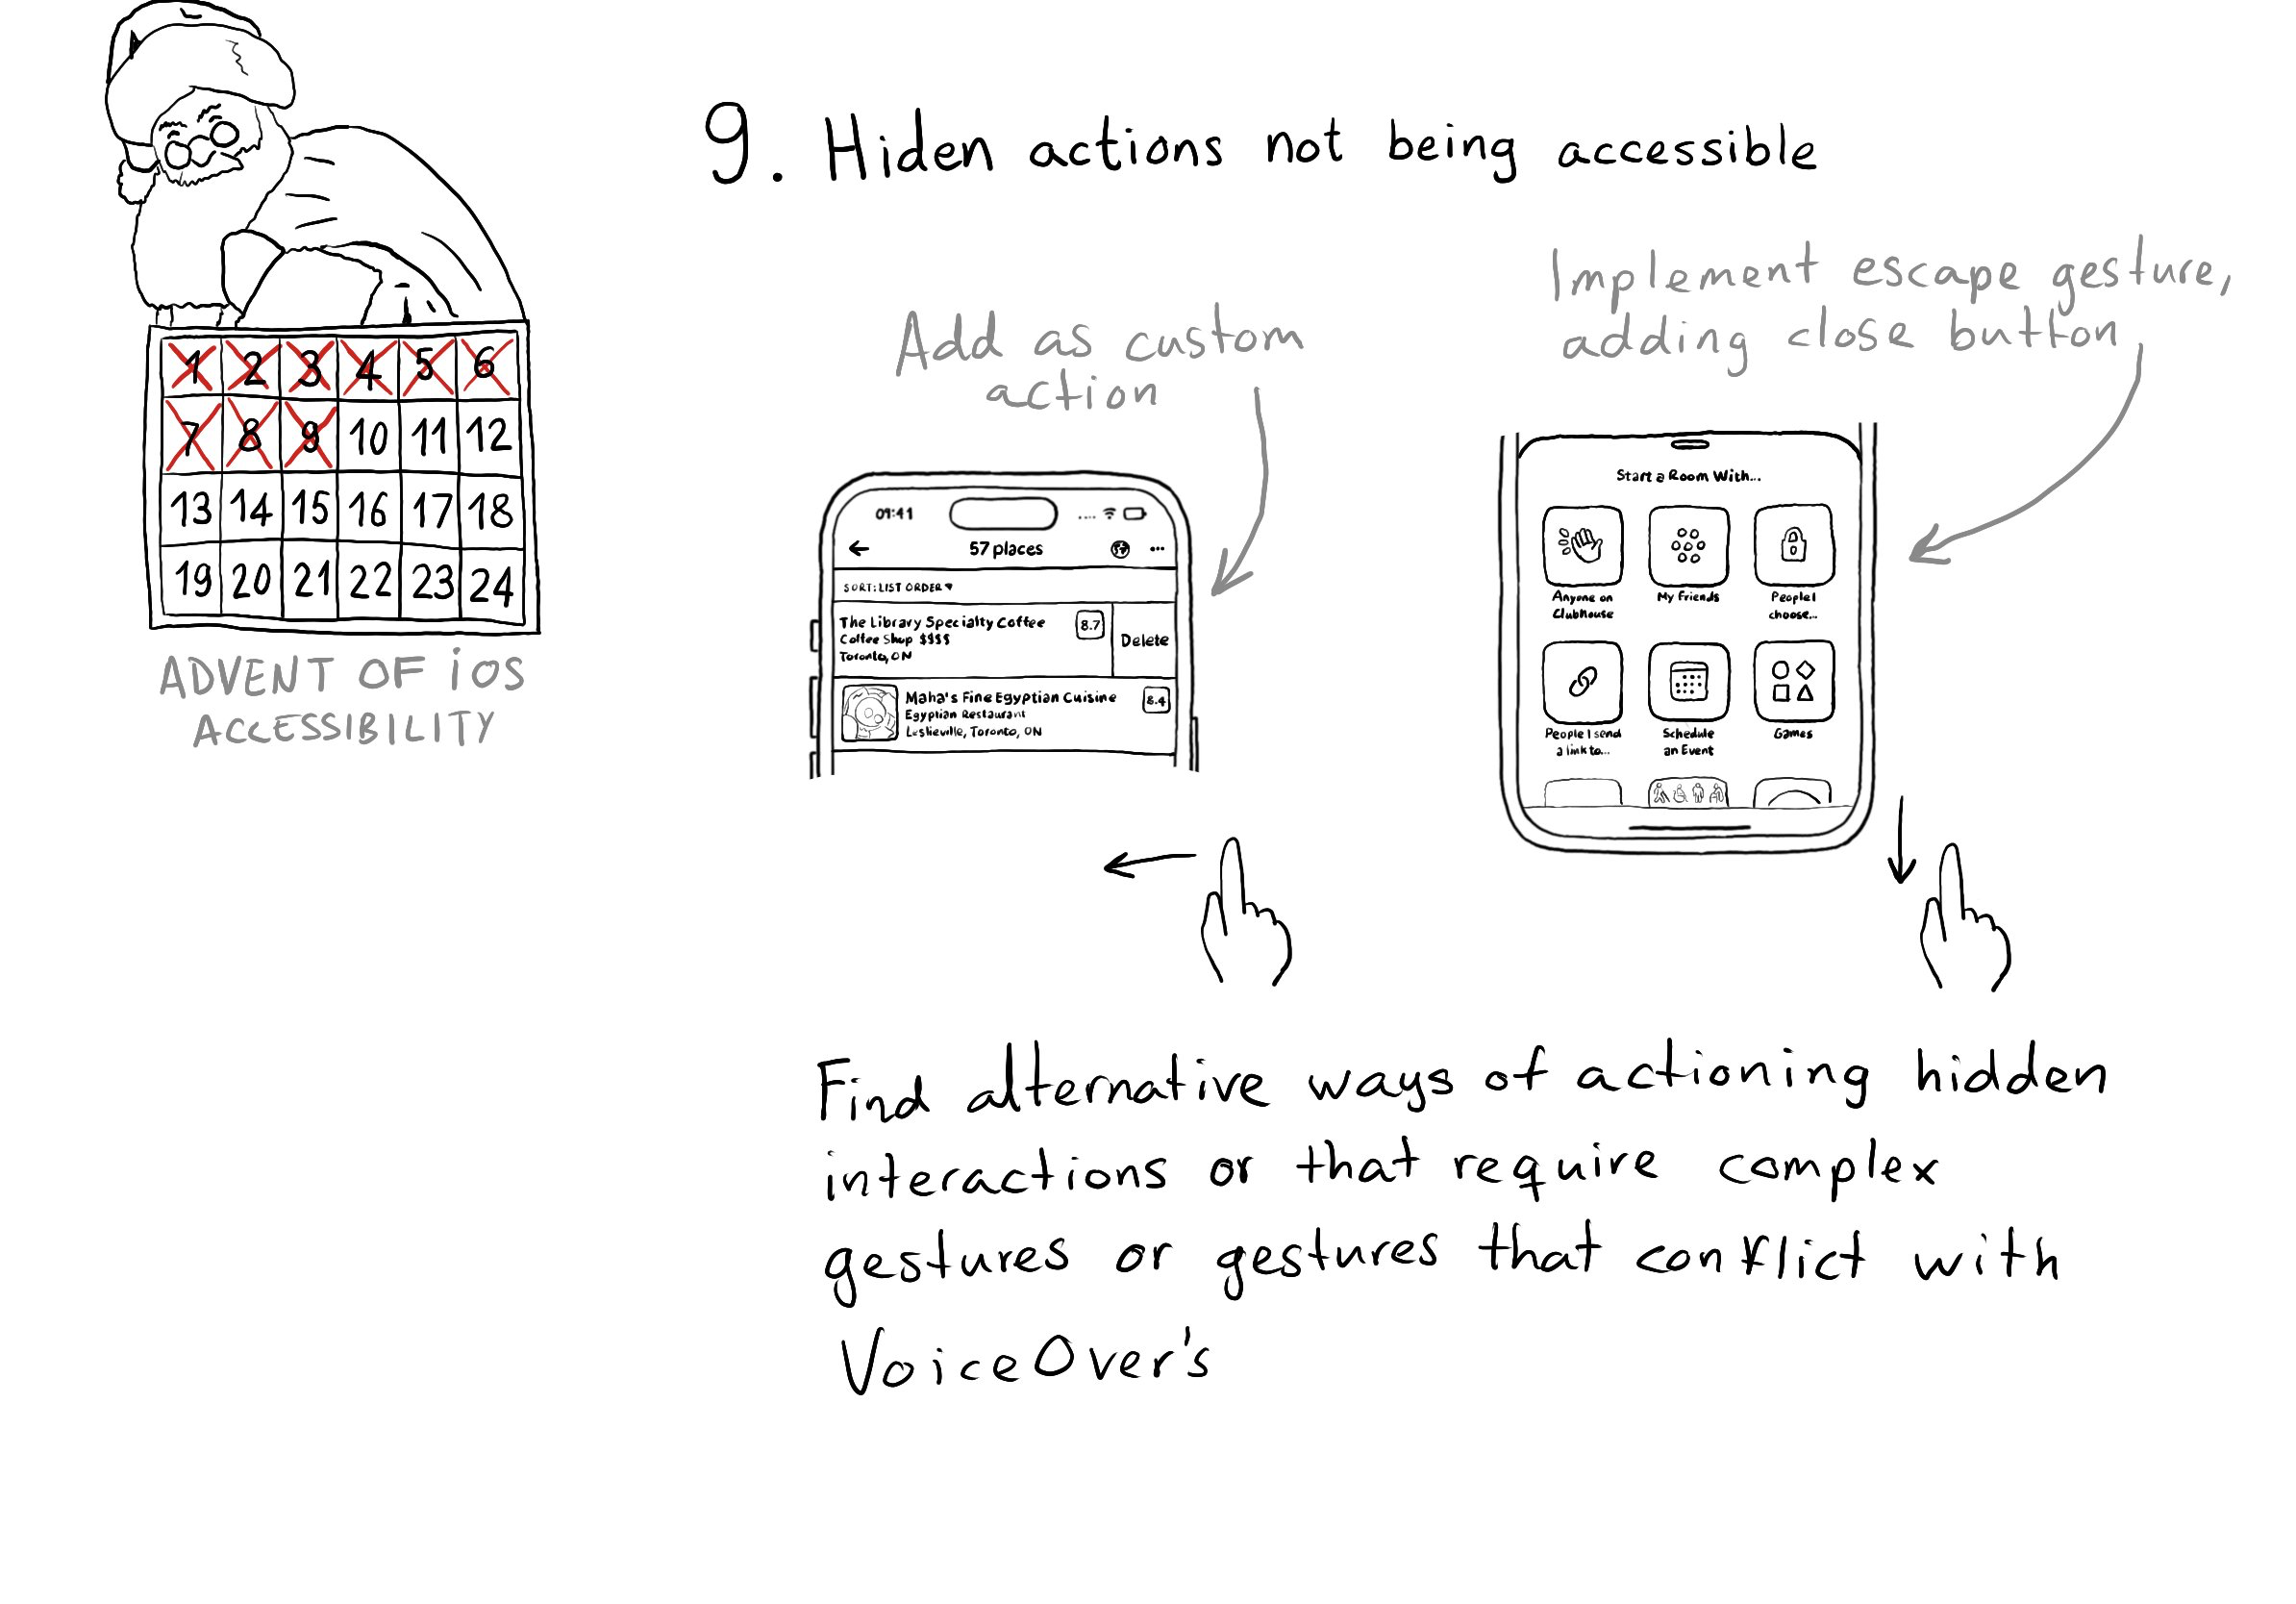 9. Hiden actions not being accessible
1 2 3 4 5 6
7 8 9 10 11 12
13 14 15 16 17 18
19 20 21 22 23 24
ADVENT OF iOS
ACCESSIBILITY
Add as custom
action
09:41
57 places
SORT: LIST ORDER
The Library Specialty Coffee
8.7
Coffee Shop $$$$
Toronto, ON
Delete
Maha's Fine Egyptian Cuisine
8.4
Egyptian Restaurant
Leslieville, Toronto, ON
Implement escape gesture,
adding close button,
Start a Room With...
Anyone on
Clubhouse
My Friends
People I
choose...
People I send
a link to...
Schedule
an Event
Games
Find alternative ways of actioning hidden
interactions or that require complex
gestures or gestures that conflict with
VoiceOver's